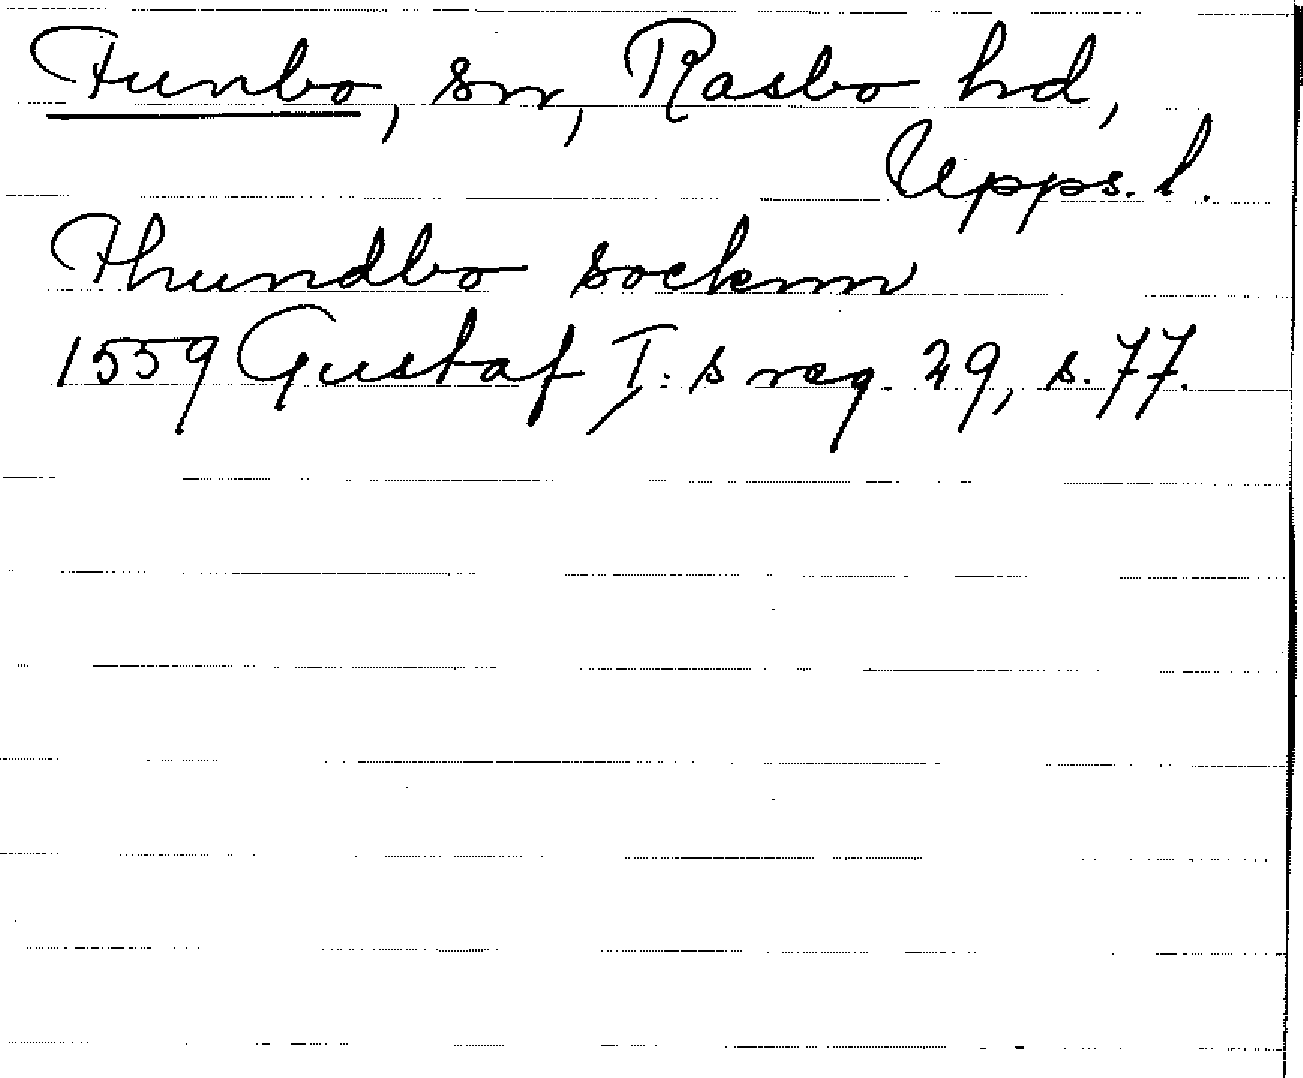 Funbo, sn, Rasbo hd,
Upps. l.
Fhundbo socknn
1559 Gustaf I:s reg. 29, s. 77.